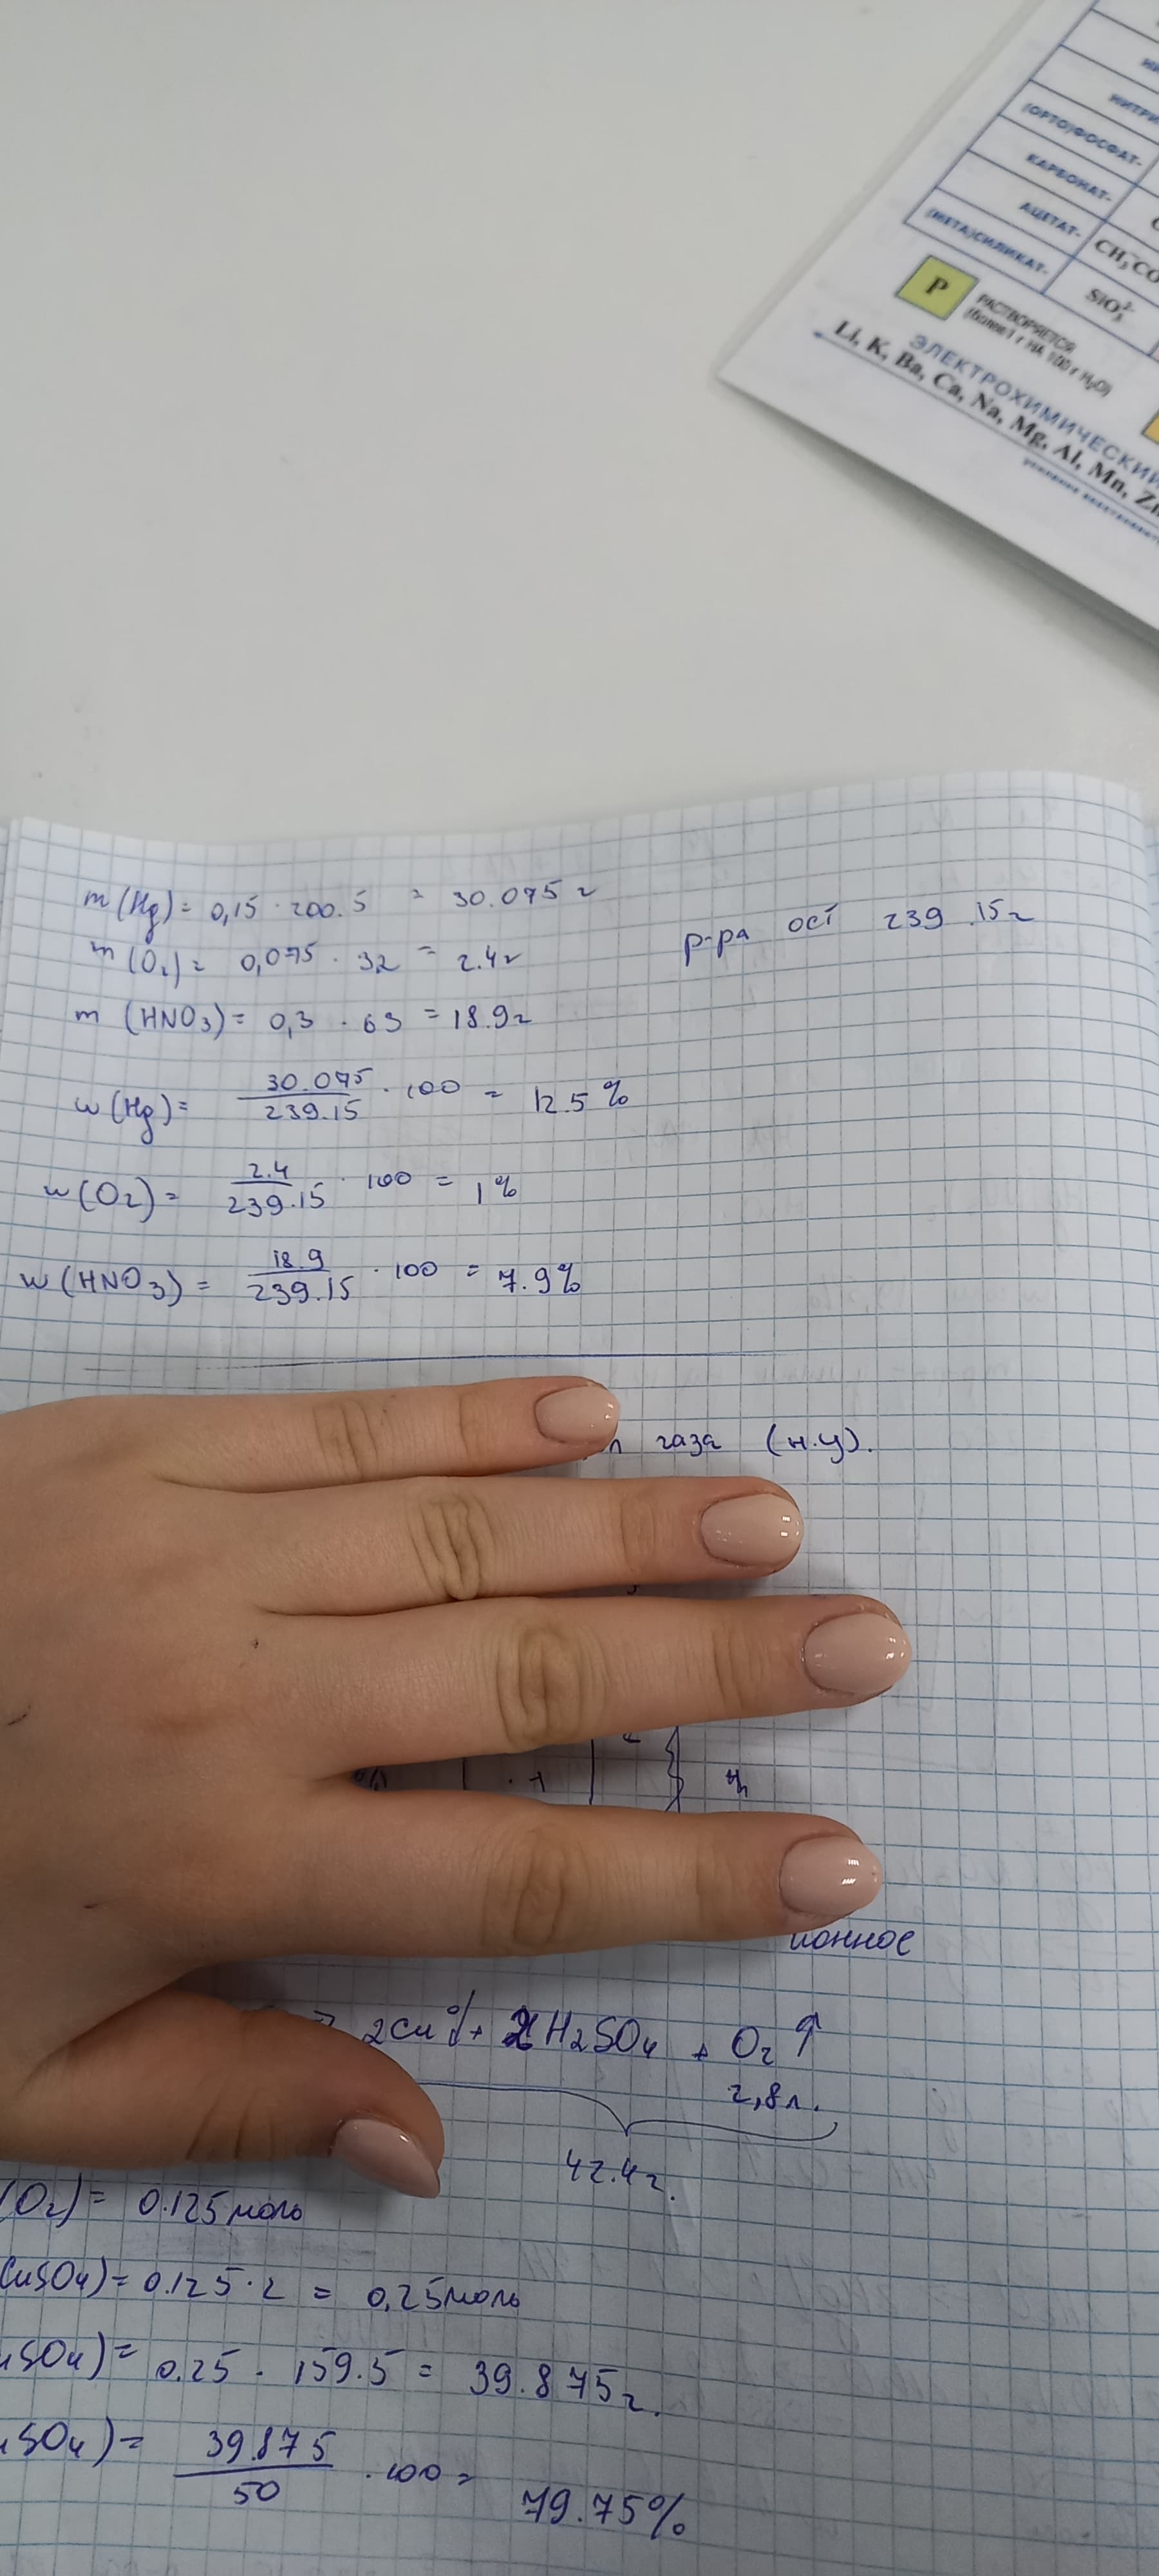 НИТРИ
(ОРТО)ФОСФАТ-
КАРБОНАТ-
АЦЕТАТ- CH₃CO
(МЕТА)СИЛИКАТ- SiO₃²⁻
P РАСТВОРЯЕТСЯ
(более 1 г НА 100 г H₂O)
ЭЛЕКТРОХИМИЧЕСКИЙ
Li, K, Ba, Ca, Na, Mg, Al, Mn, Zn
m (Hg) = 0,15 · 200.5 = 30.075 г
m (O₂) = 0,075 · 32 = 2.4г
р-ра ост 239.15г
m (HNO₃) = 0,3 · 63 = 18.9г
w (Hg) = 30.075/239.15 · 100 = 12.5 %
w (O₂) = 2.4/239.15 · 100 = 1 %
w (HNO₃) = 18.9/239.15 · 100 = 7.9%
газа (н.у).
ионное
2Cu↓ + 2H₂SO₄ + O₂↑
2,8л.
42.4г.
(O₂) = 0.125моль
CuSO₄) = 0.125 · 2 = 0,25моль
uSO₄) = 0.25 · 159.5 = 39.875г.
uSO₄) = 39.875/50 · 100 = 79.75%